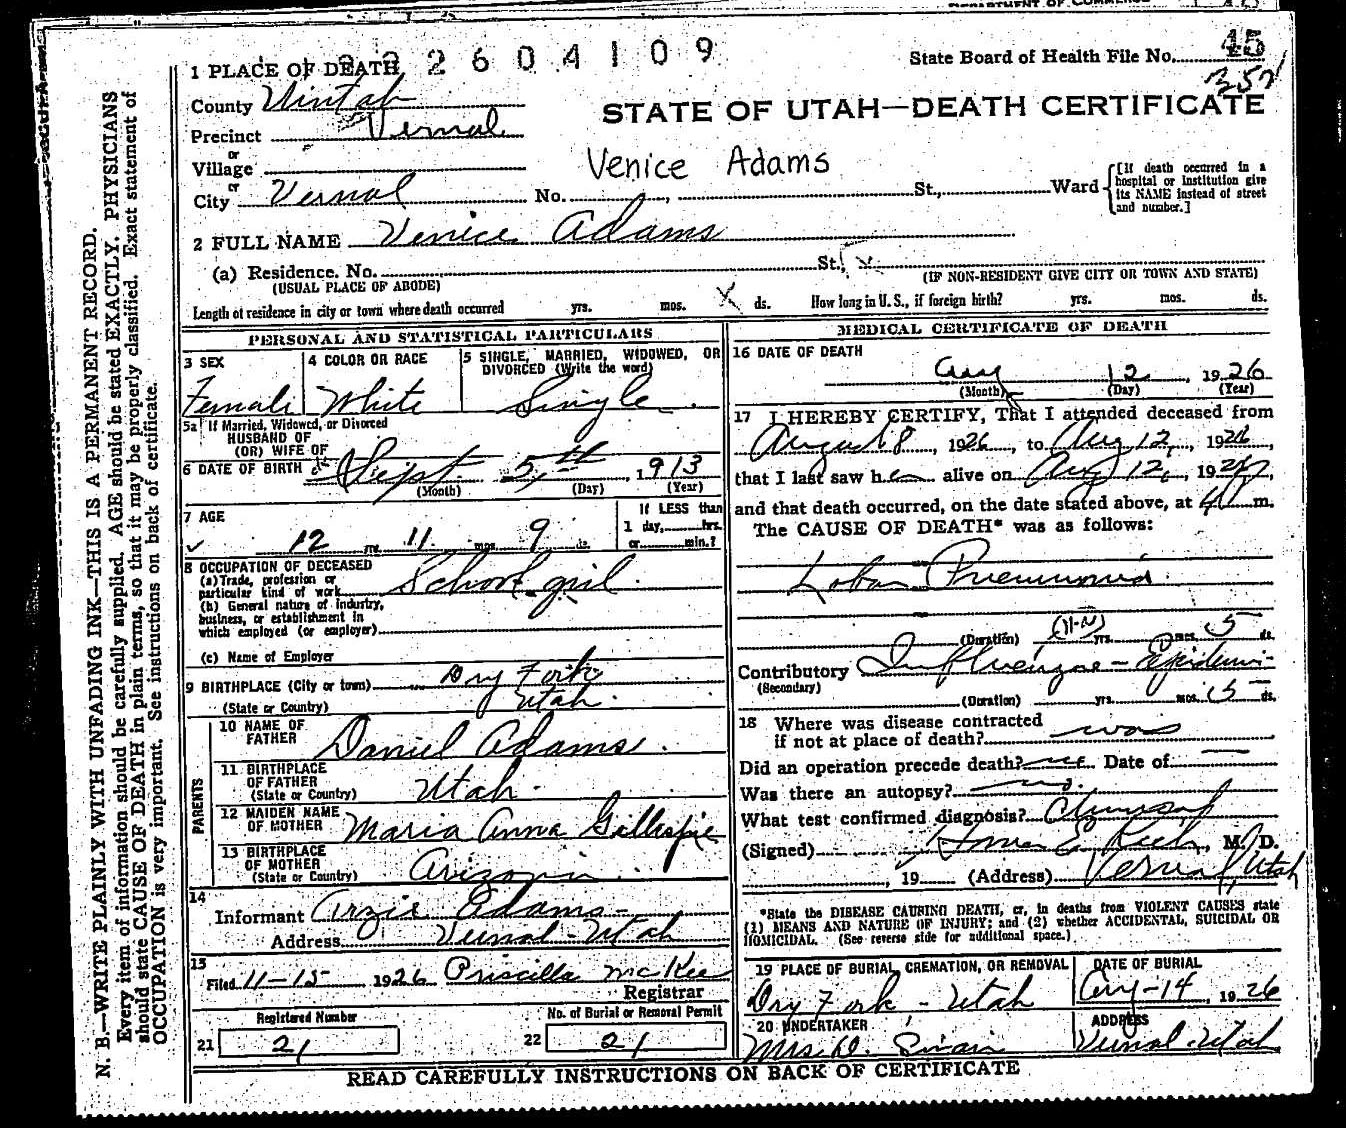 DEPARTMENT OF COMMERCE
1 PLACE OF DEATH
2 6 0 4 1 0 9
State Board of Health File No. 45
357
County Uintah
STATE OF UTAH—DEATH CERTIFICATE
Precinct Vernal
or
Village
Venice Adams
or
City Vernal No. , St., Ward
[If death occurred in a hospital or institution give its NAME instead of street and number.]
2 FULL NAME Venice Adams
(a) Residence. No. St.,
(USUAL PLACE OF ABODE)
(IF NON-RESIDENT GIVE CITY OR TOWN AND STATE)
Length of residence in city or town where death occurred yrs. mos. X ds. How long in U. S., if foreign birth? yrs. mos. ds.
PERSONAL AND STATISTICAL PARTICULARS
3 SEX
Female
4 COLOR OR RACE
White
5 SINGLE, MARRIED, WIDOWED, OR DIVORCED (Write the word)
Single
5a If Married, Widowed, or Divorced
HUSBAND OF
(OR) WIFE OF
6 DATE OF BIRTH Sept. 5th, 1913
(Month) (Day) (Year)
7 AGE
12 yrs. 11 mos. 9 ds.
If LESS than
1 day, hrs.
or min.?
8 OCCUPATION OF DECEASED
(a) Trade, profession or
particular kind of work School girl
(b) General nature of industry,
business, or establishment in
which employed (or employer)
(c) Name of Employer
9 BIRTHPLACE (City or town) Dry Fork
(State or Country) Utah.
PARENTS
10 NAME OF
FATHER Daniel Adams.
11 BIRTHPLACE
OF FATHER
(State or Country) Utah.
12 MAIDEN NAME
OF MOTHER Maria Anna Gillespie
13 BIRTHPLACE
OF MOTHER
(State or Country) Arizona
14
Informant Arzie Adams
Address Vernal - Utah
15
Filed 11-15 1926 Priscilla McKee
Registrar
Registered Number
21 21
No. of Burial or Removal Permit
22 21
MEDICAL CERTIFICATE OF DEATH
16 DATE OF DEATH
Aug 12, 1926
(Month) (Day) (Year)
17 I HEREBY CERTIFY, That I attended deceased from
August 8, 1926, to Aug 12, 1926,
that I last saw her alive on Aug 12, 1926,
and that death occurred, on the date stated above, at m.
The CAUSE OF DEATH* was as follows:
Lobar Pneumonia
(11-N)
(Duration) yrs. mos. 5 ds.
Contributory Influenza - Epidemi-
(Secondary)
(Duration) yrs. mos. 5 ds.
18 Where was disease contracted
if not at place of death? was
Did an operation precede death? no Date of —
Was there an autopsy? no.
What test confirmed diagnosis?
(Signed) , M. D.
, 19 (Address) Vernal, Utah
*State the DISEASE CAUSING DEATH, or, in deaths from VIOLENT CAUSES state
(1) MEANS AND NATURE OF INJURY; and (2) whether ACCIDENTAL, SUICIDAL OR
HOMICIDAL. (See reverse side for additional space.)
19 PLACE OF BURIAL, CREMATION, OR REMOVAL
Dry Fork - Utah
DATE OF BURIAL
Aug-14, 1926
20 UNDERTAKER
Mrs. D. Swain
ADDRESS
Vernal - Utah
READ CAREFULLY INSTRUCTIONS ON BACK OF CERTIFICATE
N. B.—WRITE PLAINLY WITH UNFADING INK—THIS IS A PERMANENT RECORD.
Every item of information should be carefully supplied. AGE should be stated EXACTLY. PHYSICIANS
should state CAUSE OF DEATH in plain terms, so that it may be properly classified. Exact statement of
OCCUPATION is very important. See instructions on back of certificate.